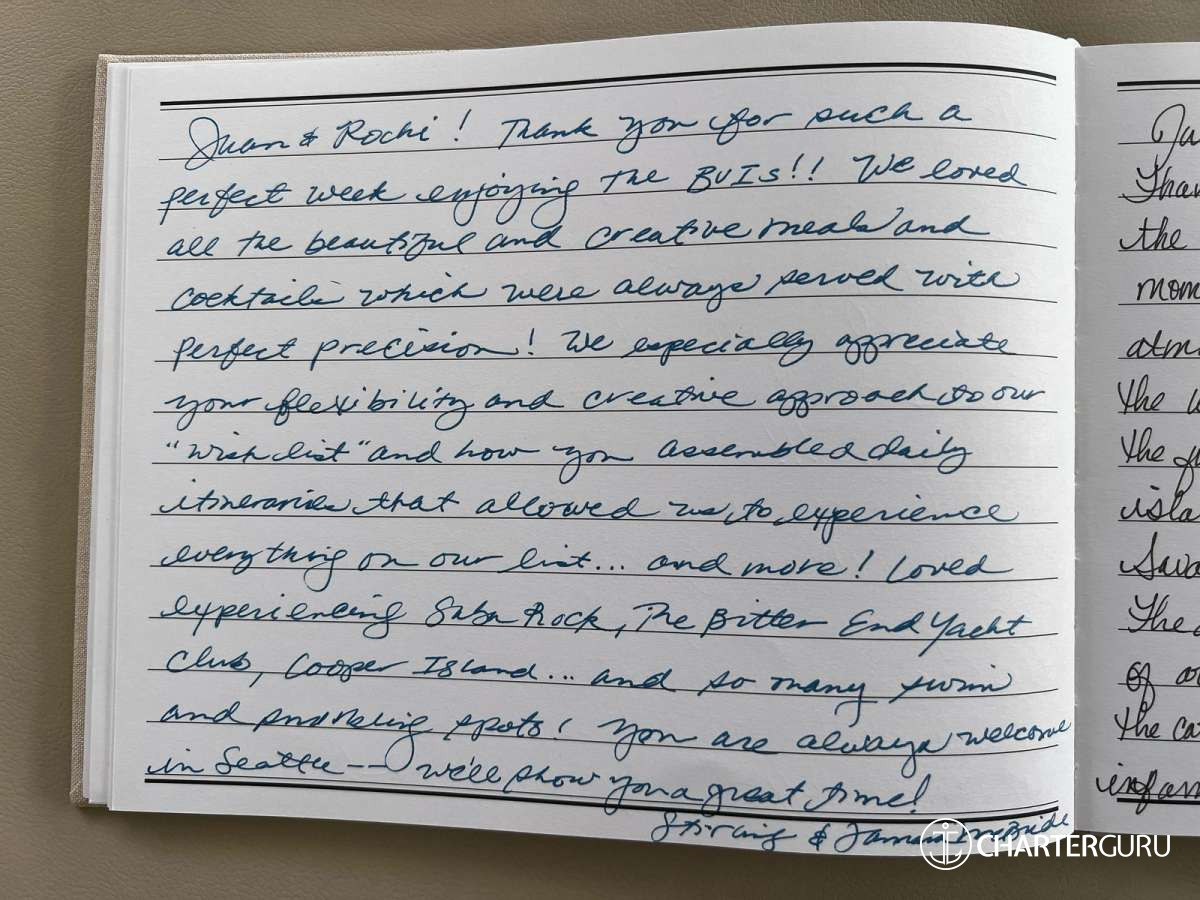 Juan & Rochi! Thank you for such a
perfect week enjoying the BVIs!! We loved
all the beautiful and creative meals and
cocktails which were always served with
perfect precision! We especially appreciate
your flexibility and creative approach to our
"wish list" and how you assembled daily
itineraries that allowed us to experience
everything on our list... and more! Loved
experiencing Saba Rock, The Bitter End Yacht
Club, Cooper Island... and so many swim
and snorkeling spots! You are always welcome
in Seattle -- we'll show you a great time!
& McBride
CHARTERGURU
Ju
Than
the
mom
atm
the
the
isla
Sava
The
of
the ca
infam